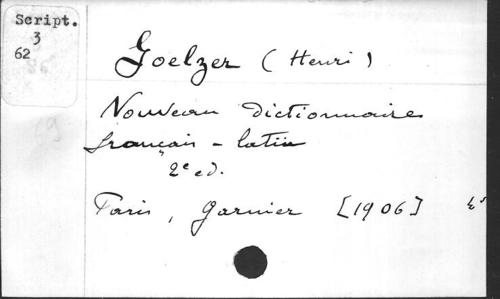 Script.
3
62
Goelzer (Henri)
Nouveau dictionnaire
français - latin
2e ed.
Paris, Garnier [1906]